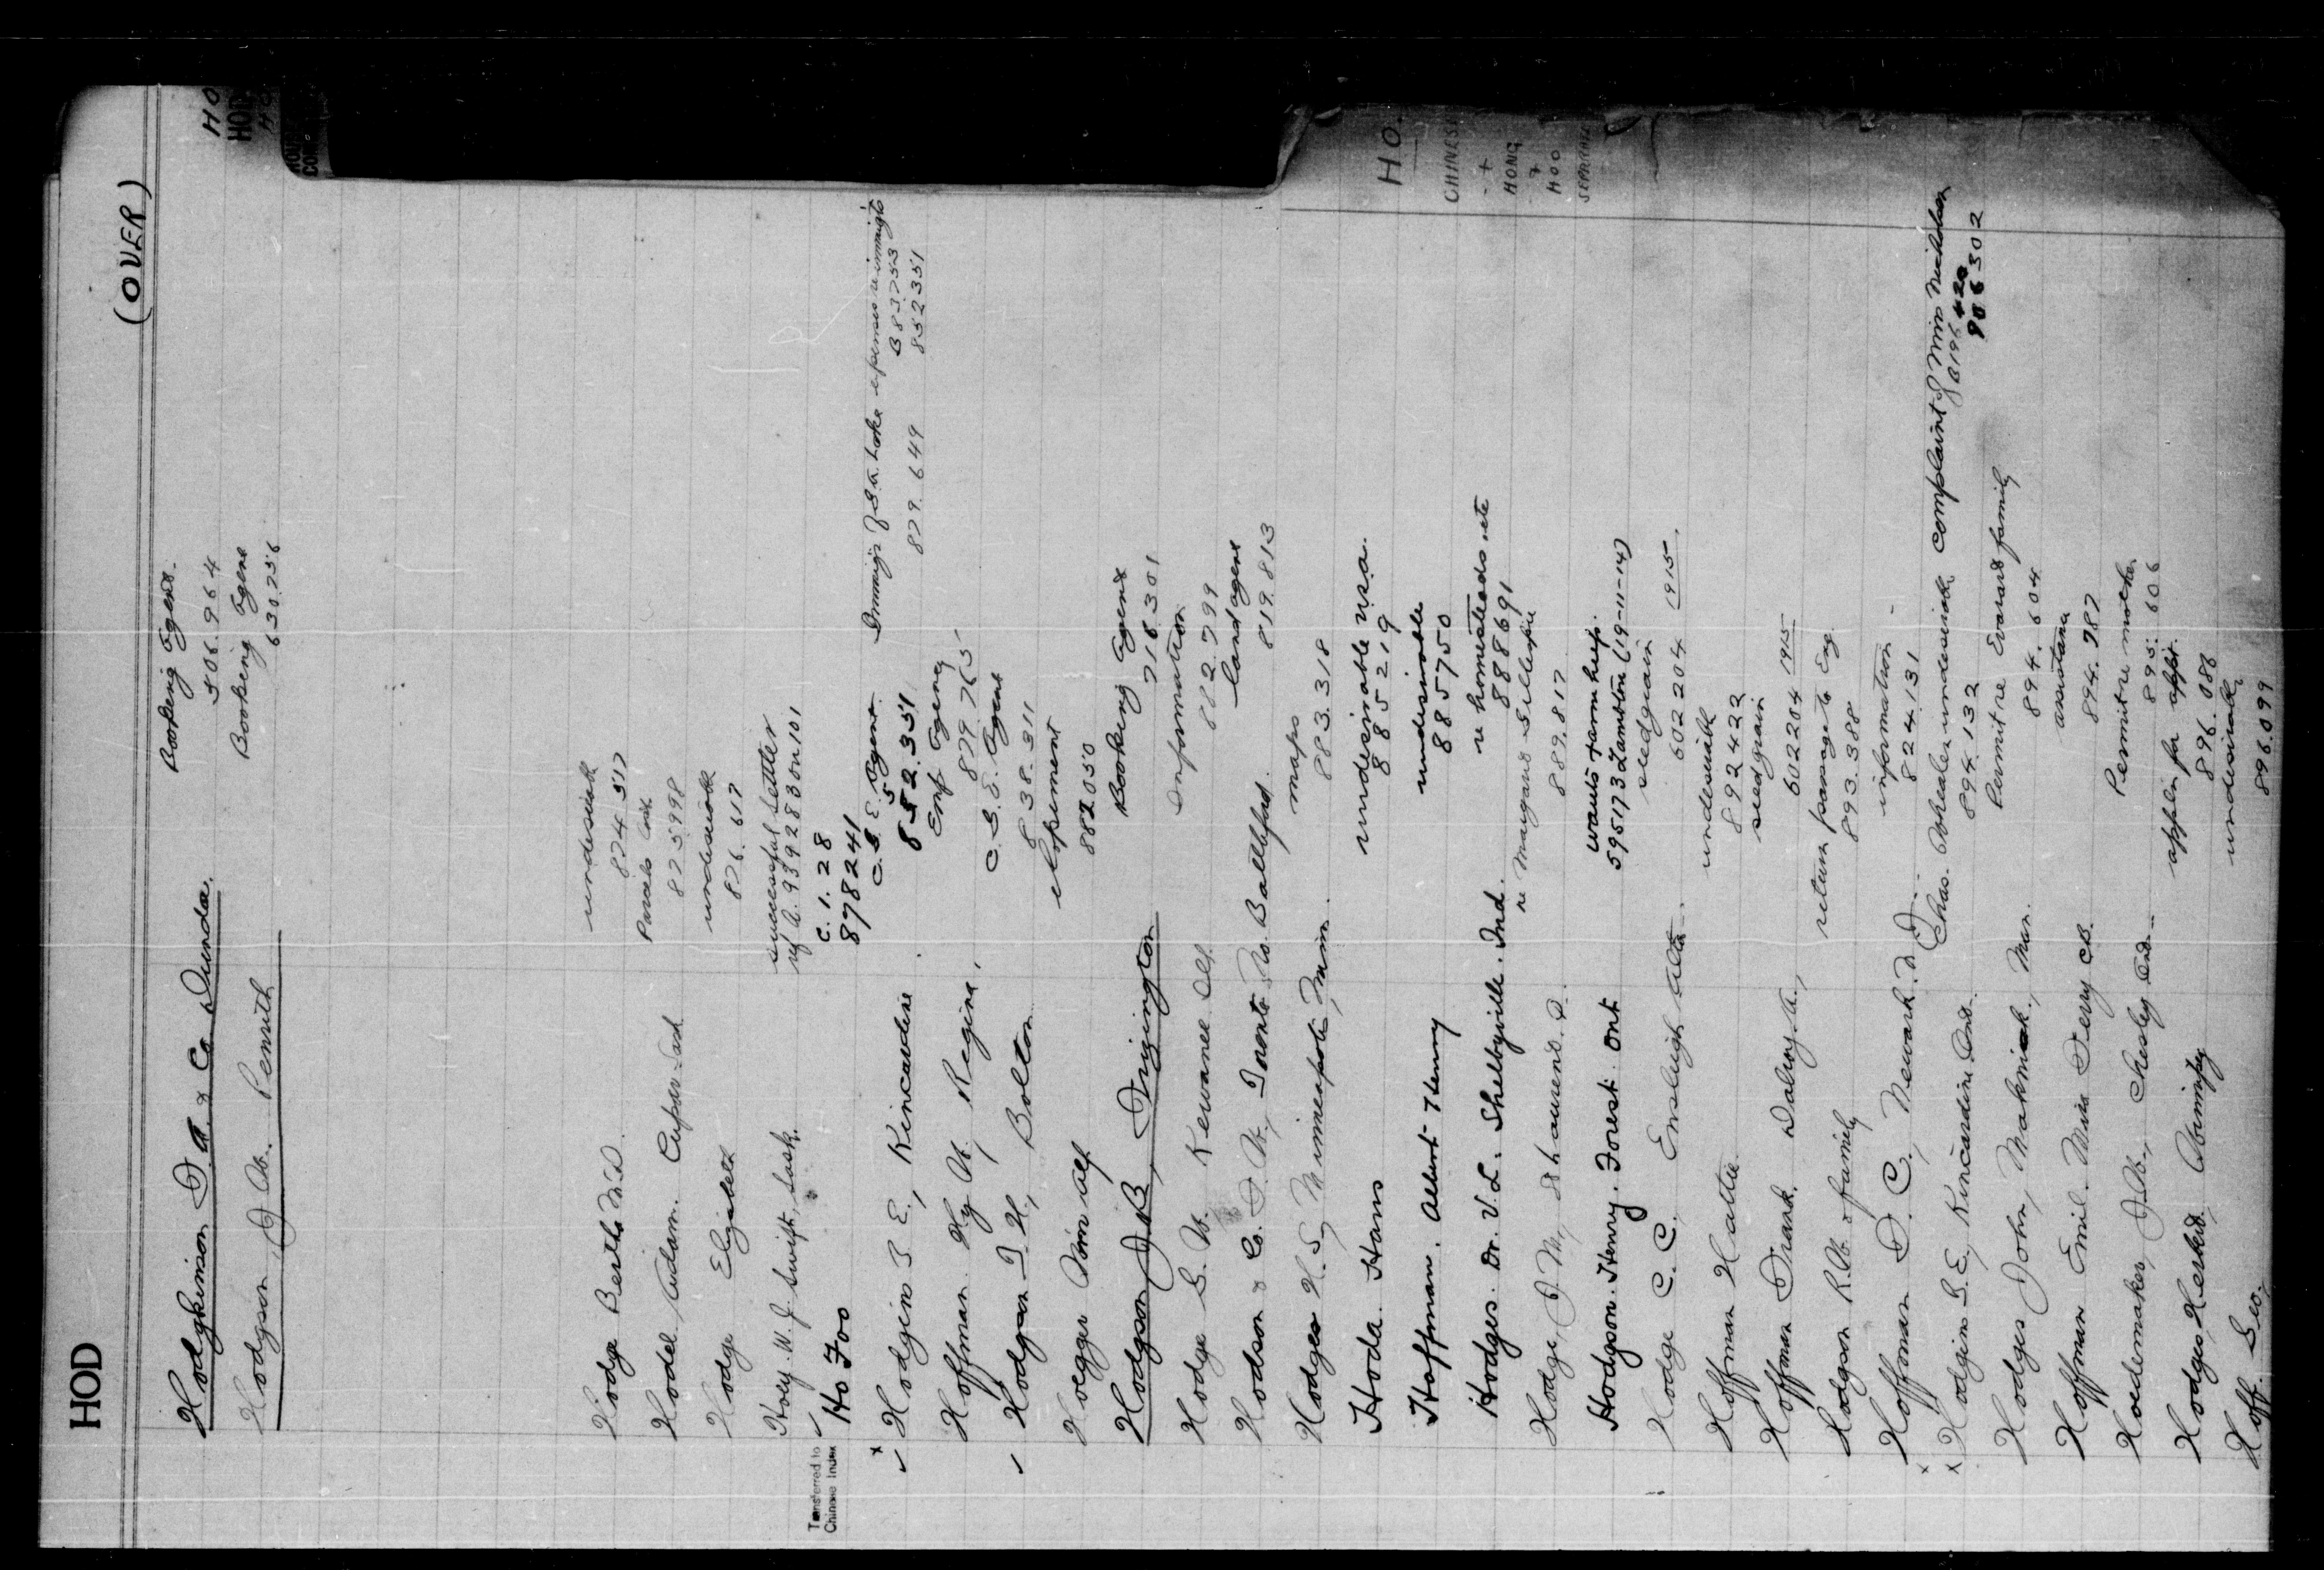 HOD
(OVER)
HO
HOD
HO
Hodgkinson F. A. & Co Dundas. Booking Agent.
506.964
Hodgson, J. W. Penrith Booking Agent
630.756
Hodge Bertha undesirable
874 517
Hodel, Adam. Cupar Sask Parcels
875998
Hodge Elizabeth undesirable
876.617
Hoey. W. J. Swift, Sask. successful settler
ref A. 939283 on 101
Transferred to
Chinese Index
Ho Foo C.1.28
878241
x Hodgins S. E., Kincardine. C. G. E. Agent
852.351
879.649
B 83753
852351
Hoffman Hy W, Regina, Emp Agency
879.765
Hodgson T H, Bolton C. G. E. Agent
838.311
Hoegger elopement
882050
Hodgson J. B, Frizington Booking Agent
716.301
Hodge G. W. Kewanee Ill. Information
882.799
Hodson & Co. F. W., Toronto No. Battleford. land agent
819.813
Hodges H. S, Minneapolis, Minn. maps
883.318
Hoda. Hans undesirable
885219
Hoffman. Albert Henry undesirable
885750
Hodges. Dr. V. L. Shelbyville. Ind. re homesteads etc
888691
Hodge, J. M, St Laurent. re Margaret Gillespie
889.817
Hodgson. Henry. Forest Ont wants farm help.
595173 Lambton (19-11-14)
Hodge C. C. Ensleigh Alta. seed grain
602204 1915.
Hoffman Hattie undesirable
892422
Hoffman Frank, seed grain
602204 1915
Hodgson R. W. & family return passage to Eng.
893.388
Hoffman F. C., Newark. information
824.131
x Hodgins S. E, Kincardine Ont. Chas. Wheeler undesirable complaint of Miss Nicholson
894.132
906302
Hodges John, Makinak, Man. Permit re Evarard family
894.604
Hoffman Emil. Mara Ferry C.B. assistance
894.787
Hoedemaker, J. W., Chesley Ont Permit re mother
895.606
Hodges, Herbert, Abingley appln for appt.
896.086
Hoff. Geo, undesirable
896.099
HO.
CHINESE
+
HONG
+
HOO
SEPARATE